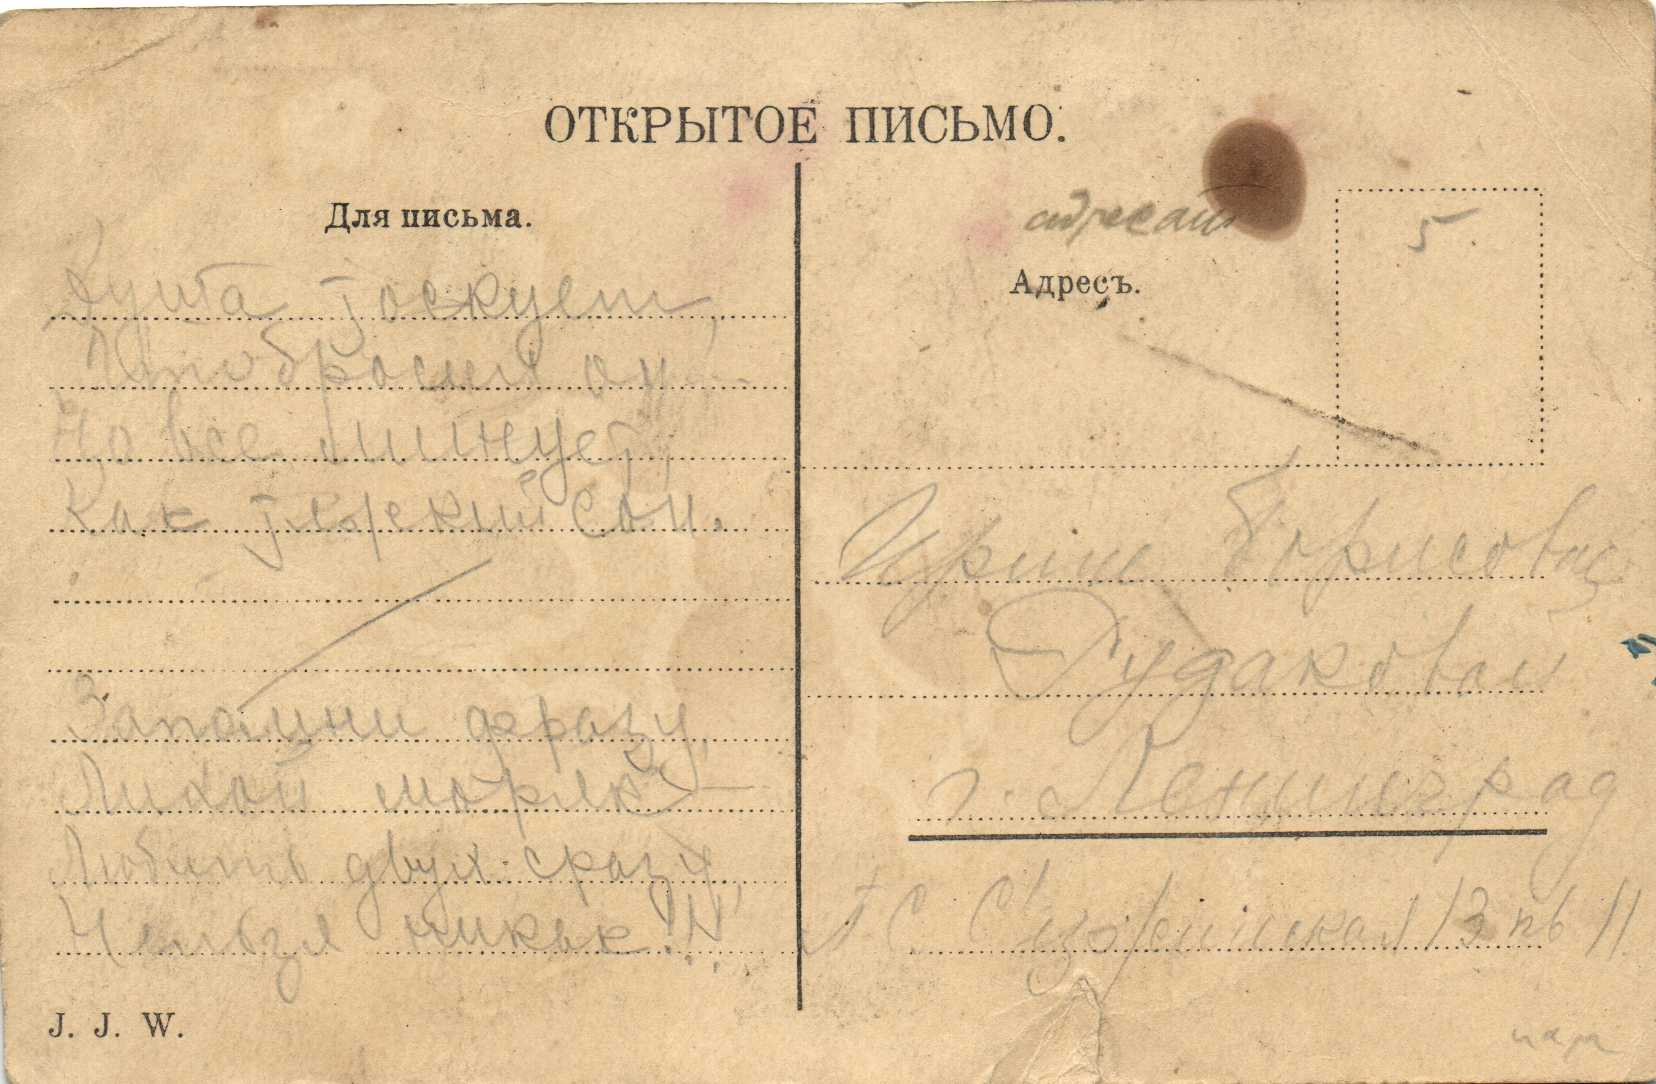 ОТКРЫТОЕ ПИСЬМО.
Для письма.
Душа тоскует,
Что бросил он
Но все минует,
Как тяжкий сон.
Запомни фразу,
Лихой моряк —
Любить двух сразу,
Нельзя никак!!!
J. J. W.
адресат
Адресъ.
5
Ирине Борисовой
Рудаковой
г. Ленинград
13 кв 11